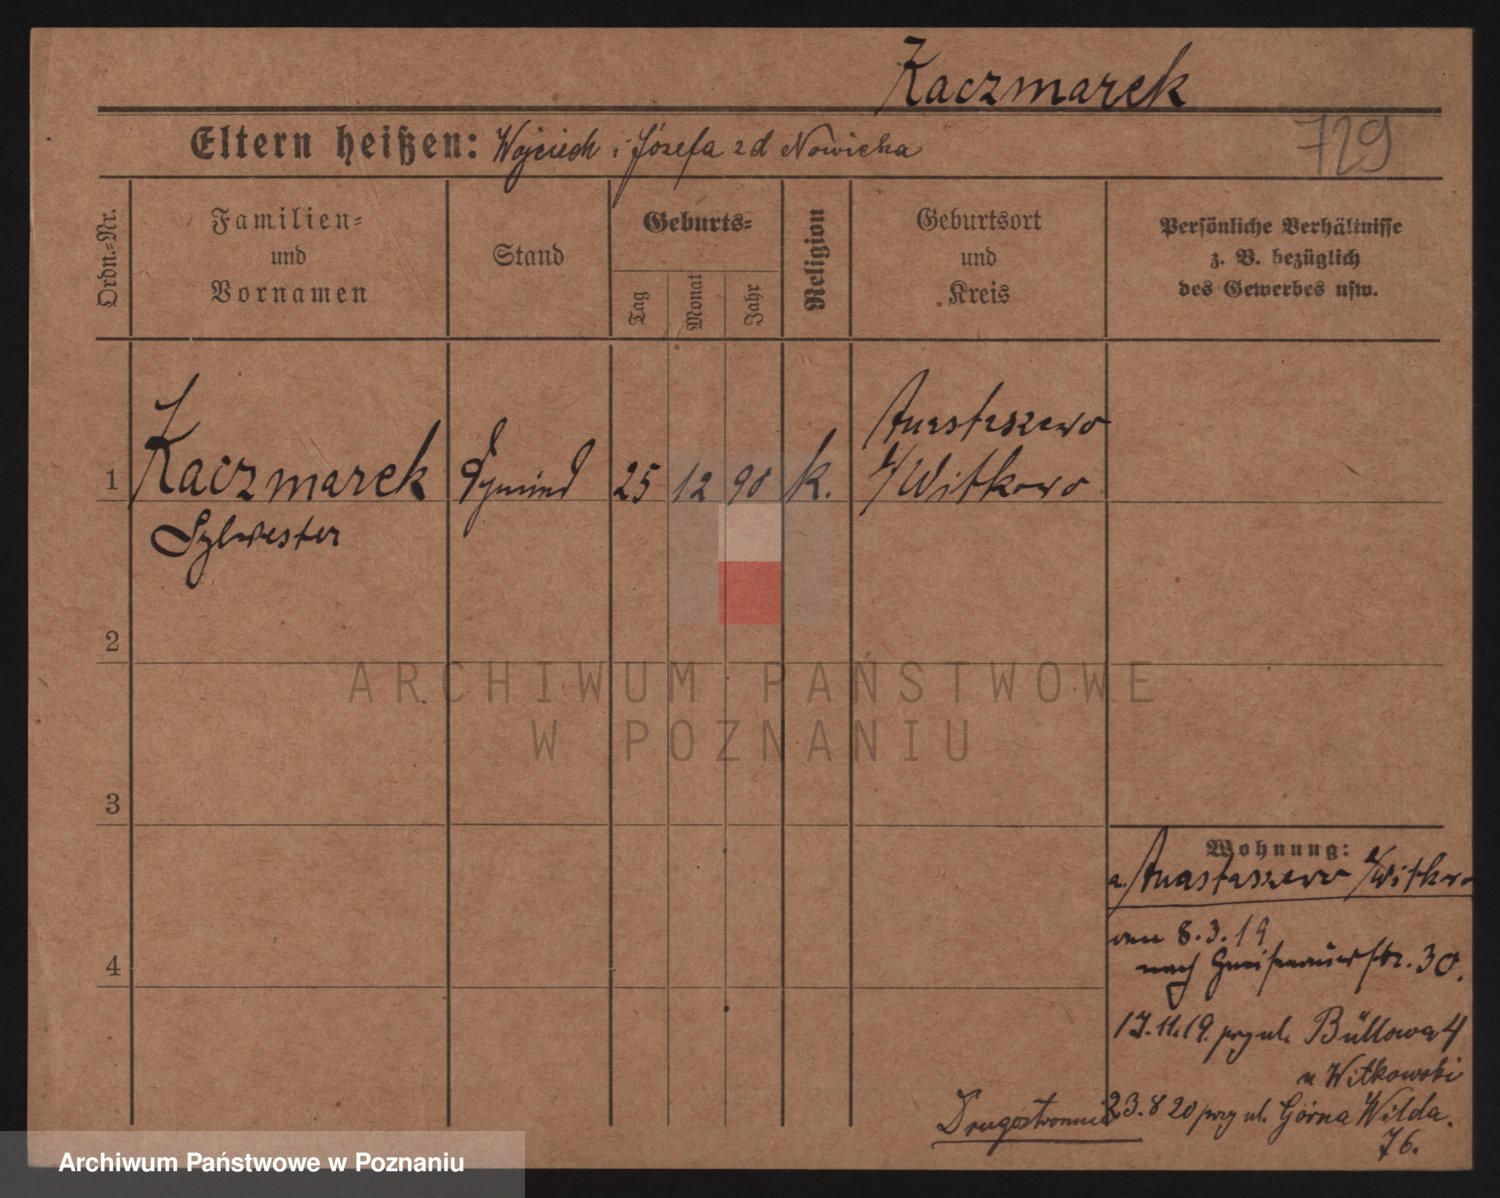 Kaczmarek
729
Eltern heißen: Wojciech i Józefa zd Nowicka
Ordn.-Nr.
Familien-
und
Vornamen
Stand
Geburts-
Tag
Monat
Jahr
Religion
Geburtsort
und
Kreis
Persönliche Verhältnisse
z. B. bezüglich
des Gewerbes usw.
1
Kaczmarek
Sylwester
25 12 90 k.
Anastazewo
/Witkowo
2
ARCHIWUM PAŃSTWOWE
W POZNANIU
3
Wohnung:
a. Anastazewo /Witkowo
8.3.19
nach Gneisenaustr. 30.
4
17.11.19. przy ul. Büllowa 4
u Witkowski
23.8 20 przy ul. Górna Wilda.
76.
Drugostronnie
Archiwum Państwowe w Poznaniu